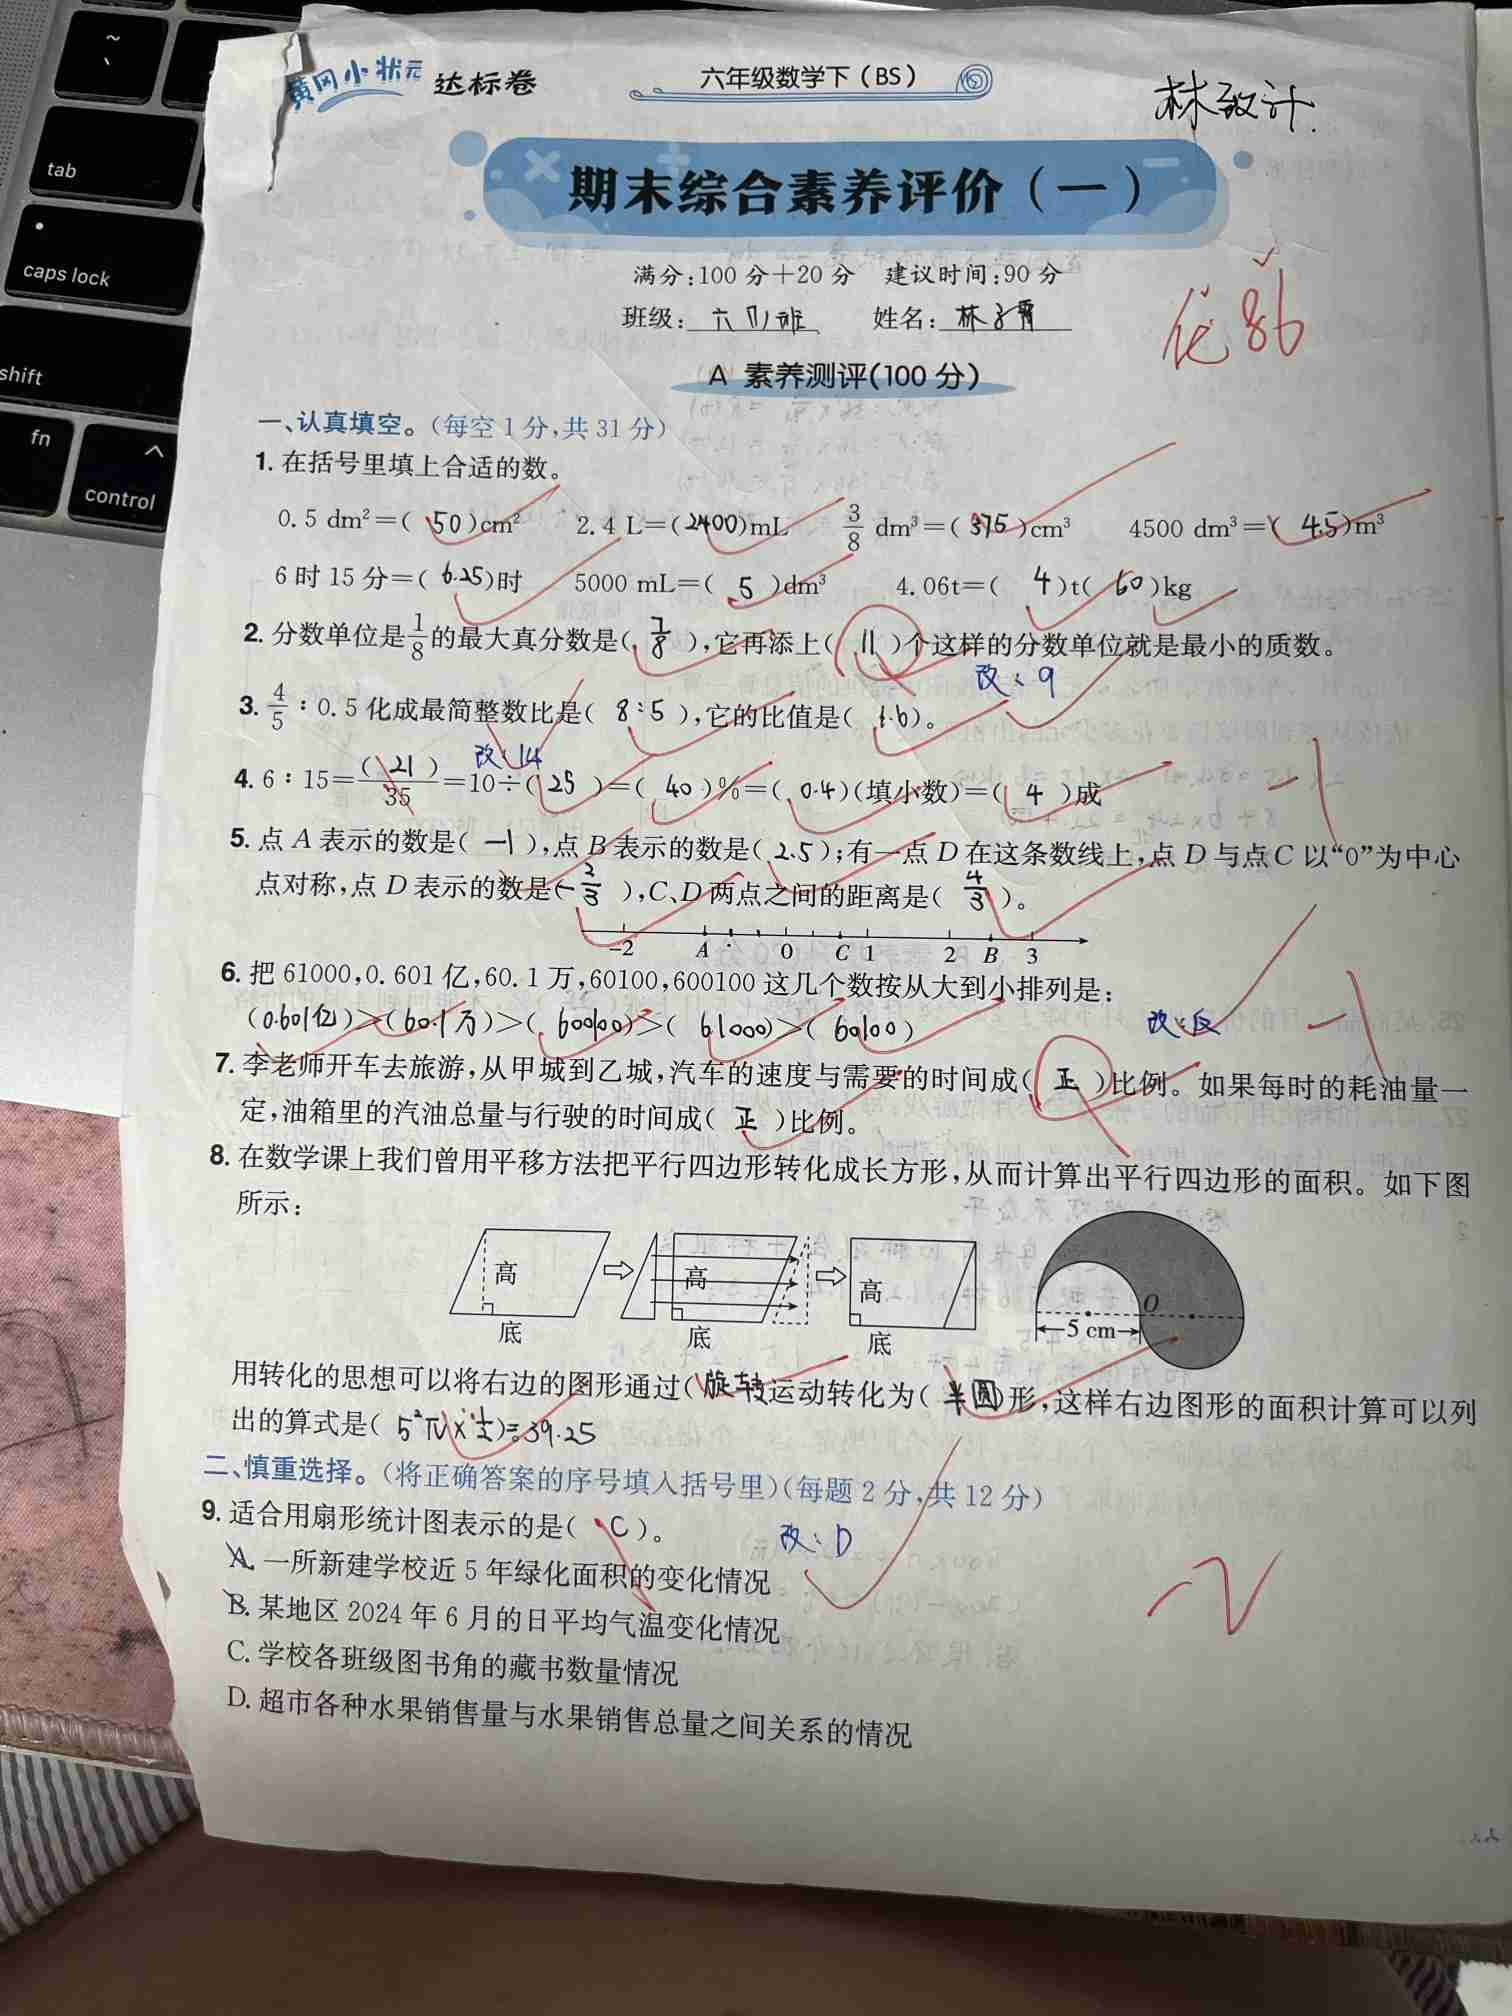 ~
、
tab
caps lock
shift
fn
control
黄冈小状元 达标卷
六年级数学下(BS)
期末综合素养评价(一)
满分:100分+20分 建议时间:90分
班级: 姓名:
优86
A 素养测评(100分)
一、认真填空。(每空1分,共31分)
1. 在括号里填上合适的数。
0.5 dm²=( 50 )cm² 2.4 L=(2400)mL 3/8 dm³=( 375 )cm³ 4500 dm³=( 4.5 )m³
6时15分=( 6.25 )时 5000 mL=( 5 )dm³ 4.06t=( 4 )t( 60 )kg
2. 分数单位是1/8的最大真分数是( 7/8 ),它再添上( 11 )个这样的分数单位就是最小的质数。
改:9
3. 4/5∶0.5化成最简整数比是( 8:5 ),它的比值是( 1.6 )。
改:14
4. 6∶15=( 21 )/35=10÷( 25 )=( 40 )%=( 0.4 )(填小数)=( 4 )成
-1
5. 点A表示的数是( -1 ),点B表示的数是( 2.5 );有一点D在这条数线上,点D与点C以“0”为中心
点对称,点D表示的数是(-2/3 ),C、D两点之间的距离是( 4/3 )。
-2 A 0 C 1 2 B 3
6. 把61000,0.601亿,60.1万,60100,600100这几个数按从大到小排列是:
(0.601亿)>(60.1万)>( 600100)>( 61000)>( 60100 )
改:反
-1
7. 李老师开车去旅游,从甲城到乙城,汽车的速度与需要的时间成( 正 )比例。如果每时的耗油量一
定,油箱里的汽油总量与行驶的时间成( 正 )比例。
8. 在数学课上我们曾用平移方法把平行四边形转化成长方形,从而计算出平行四边形的面积。如下图
所示:
高 底 高 底 高 底 O 5 cm
用转化的思想可以将右边的图形通过( 旋转 )运动转化为( 半圆 )形,这样右边图形的面积计算可以列
出的算式是( 5²π×1/2 )=39.25
二、慎重选择。(将正确答案的序号填入括号里)(每题2分,共12分)
9. 适合用扇形统计图表示的是( C )。
改:D
A. 一所新建学校近5年绿化面积的变化情况
B. 某地区2024年6月的日平均气温变化情况
-2
C. 学校各班级图书角的藏书数量情况
D. 超市各种水果销售量与水果销售总量之间关系的情况